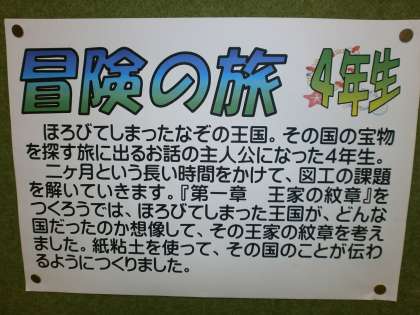 冒険の旅 4年生
ほろびてしまったなぞの王国。その国の宝物
を探す旅に出るお話の主人公になった4年生。
二ヶ月という長い時間をかけて、図工の課題
を解いていきます。『第一章　王家の紋章』を
つくろうでは、ほろびてしまった王国が、どんな
国だったのか想像して、その王家の紋章を考え
ました。紙粘土を使って、その国のことが伝わ
るようにつくりました。